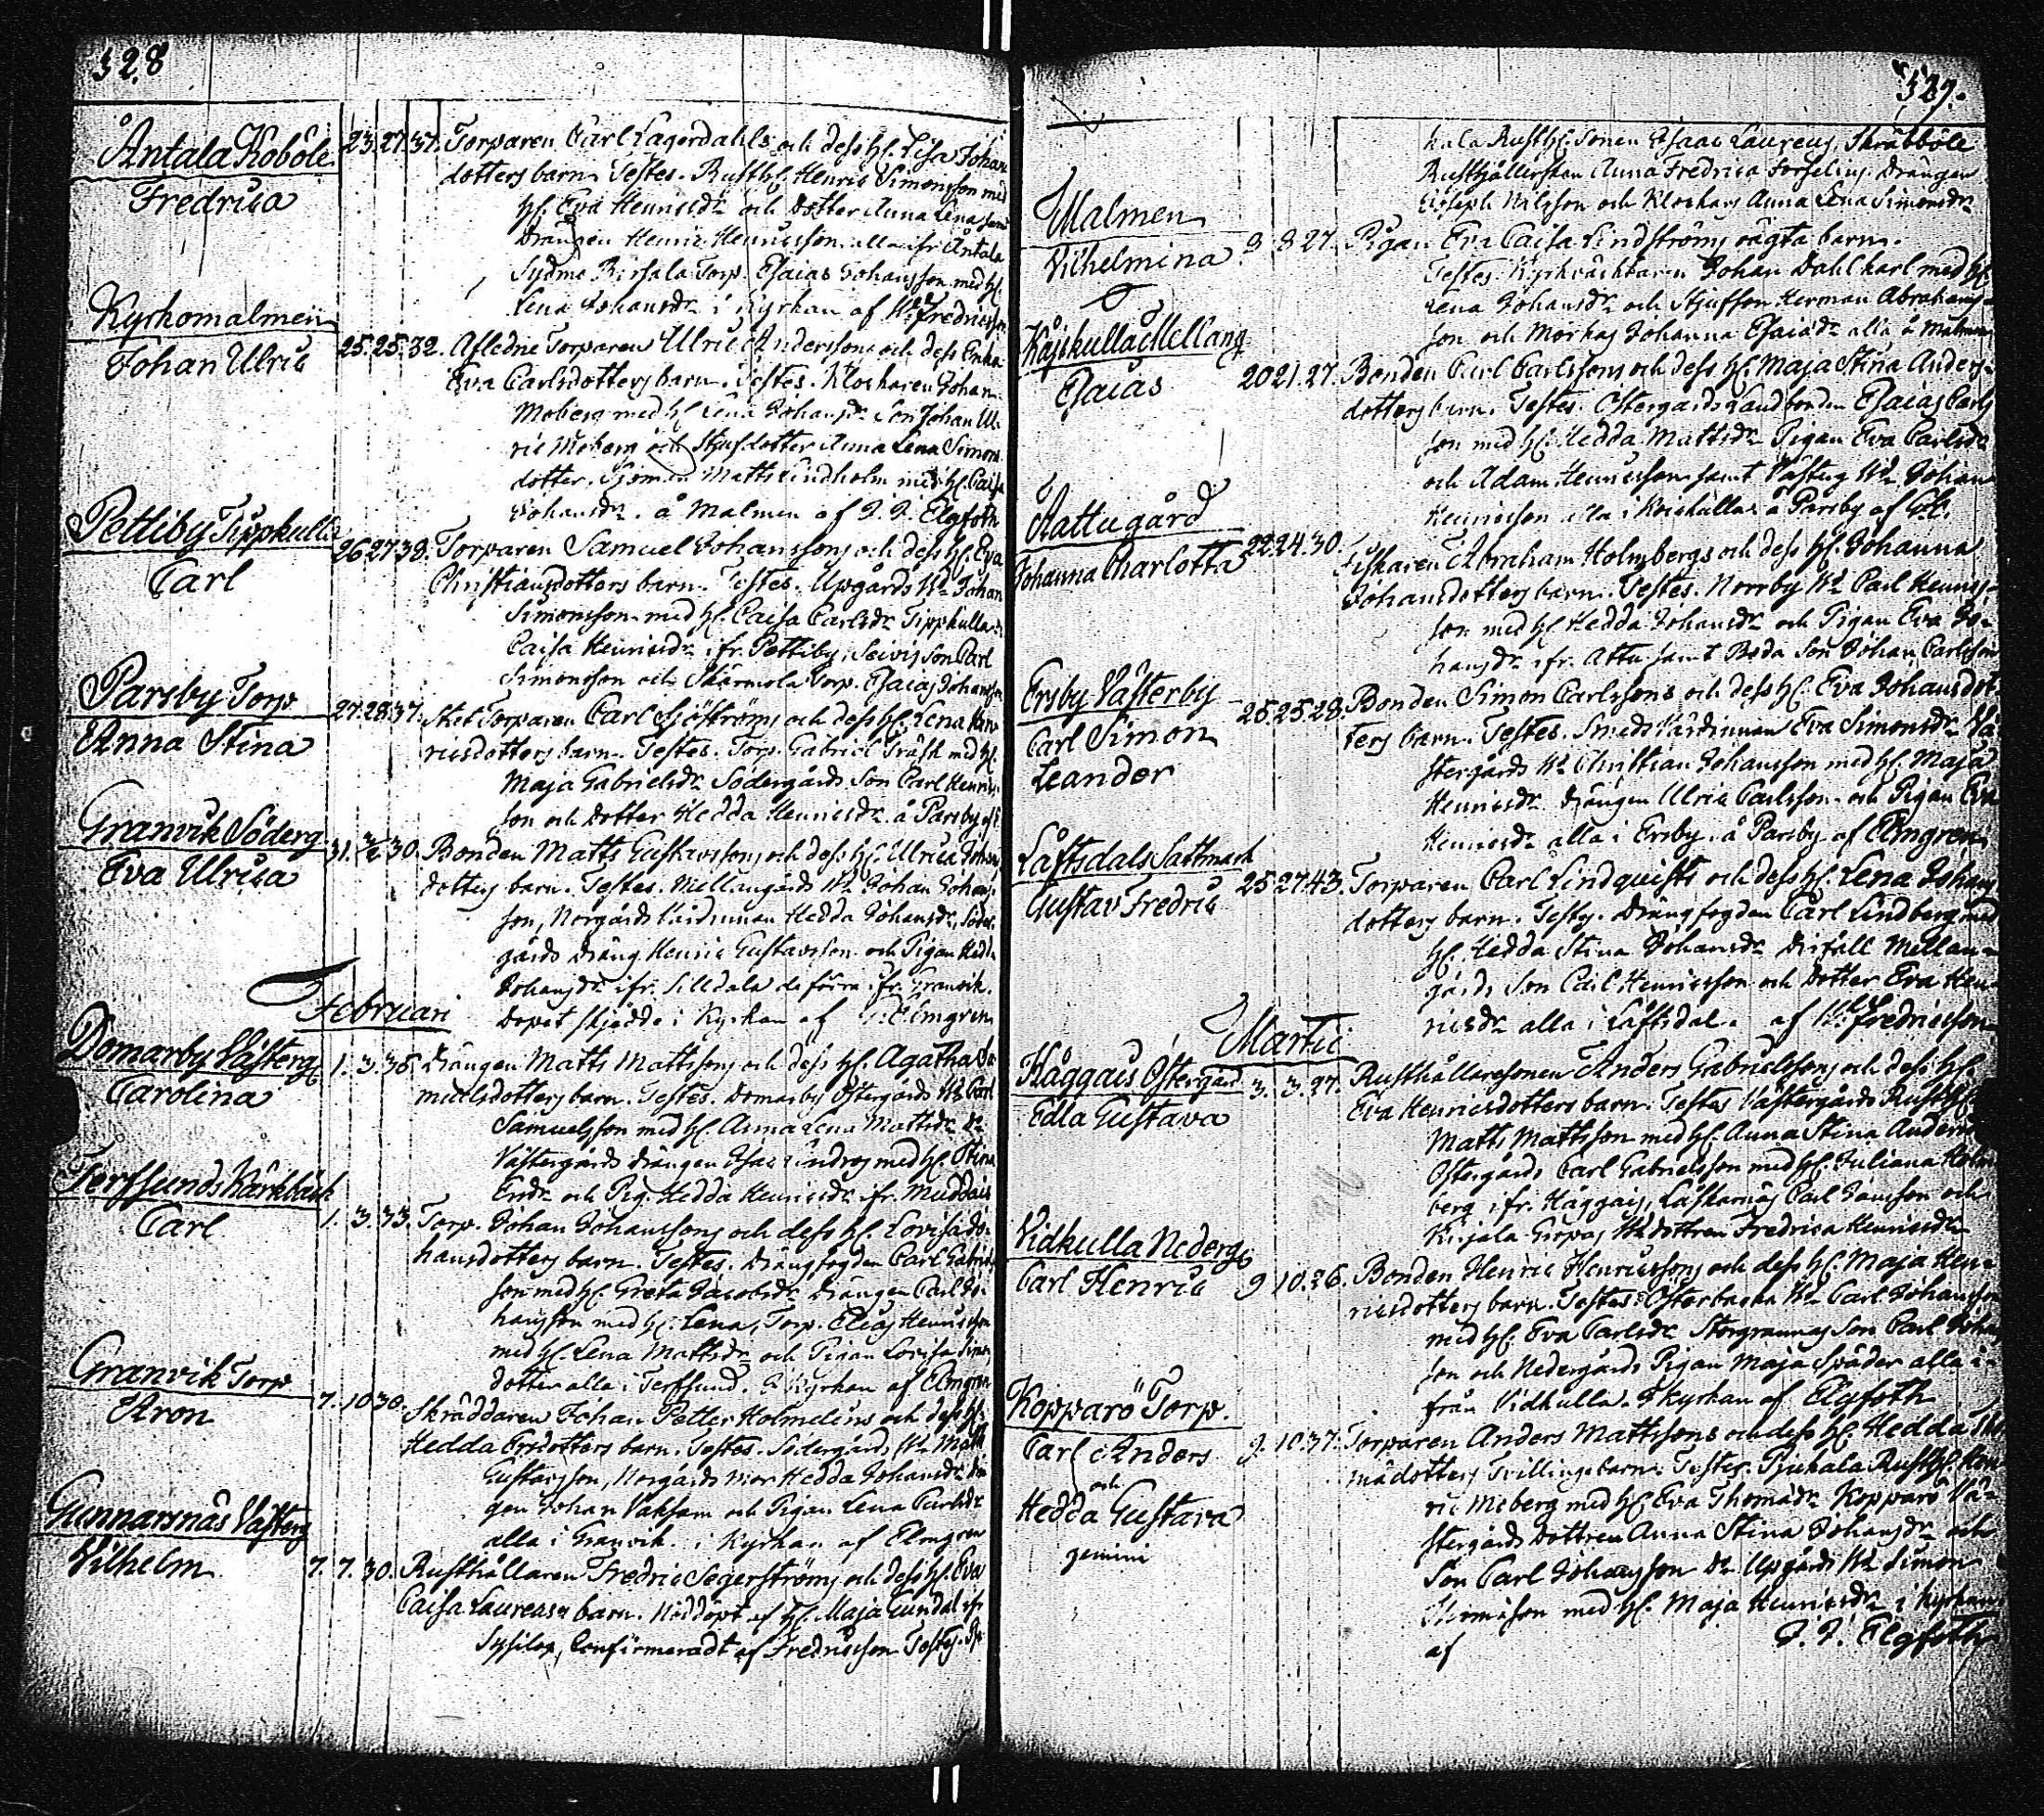 328
Åntala Koböle 23. 27. 37. Torparen Carl Lagerdahls och dess H. Lisa Johans
Fredrica dotters barn. Testes. Rusth. Henric Simonsson med
H. Eva Henricsdr och dotter Anna Lena samt
Drängen Henric Henricsson alla ifr. Åntala
Sydmo Torp. Esaias Johansson med H.
Lena Johansdr i Kyrkan af Fredricsson
Kyrkomalmen
Johan Ulric 25. 25. 32. Afledne Torparen Ulric Anderssons och dess Enka
Eva Carlsdotters barn. Testes. Klockaren Johan
Moberg med H. Lena Johansdr Son Johan Ul-
ric Moberg och Stjufdotter Anna Lena Simons
dotter. Sjöman Matts Lindholm med H. Caisa
Johansdr. å Malmen af J. J. Elgfoth
Pettiby Tippkulla
Carl 26 27 39. Torparen Samuel Johanssons och dess H. Eva
Christiansdotters barn. Testes. Upgårds Johan
Simonsson med H. Caisa Carlsdr Tippkulla
Caisa Henricsdr ifr. Pettiby, son Carl
Simonsson och Torp. Esaias Johansson
Parsby Torp
Anna Stina 27. 28. 37. Torparen Carl Sjöströms och dess H. Lena Hen-
ricsdotters barn. Testes. Torp. Gabriel Träsk med H.
Maja Gabrielsdr Södergårds Son Carl Henrics-
son och Dotter Hedda Henricsdr å Parsby af E.
Granvik Söderg.
Eva Ulrica 31. 2/2 30. Bonden Matts Gustavssons och dess H. Ulrica Johans
dotters barn. Testes. Mellangårds Johan Johans-
son, Norgårds Värdinnan Hedda Johansdr, Söder-
gårds dräng Henric Gustavsson och Pigan Hedda
Johansdr ifr. Silldala de förra ifr. Granvik.
Dopet skjedde i Kyrkan af Elmgren
Februari
Domarby Västerg
Carolina 1. 3. 35. Drängen Matts Mattssons och dess H. Agatha Sa-
muelsdotters barn. Testes. Domarby Östergårds Carl
Samuelsson med H. Anna Lena Mattsdr Dr
Västergårds drängen Isac Lindros med H. Stina
Ersdr och Pig. Hedda Henricsdr ifr. Muddais
Terfsunds Kärkbäck
Carl 1. 3. 33. Torp. Johan Johanssons och dess H. Lovisa Jo-
hansdotters barn. Testes. Drängfogden Carl Gabriels
son med H. Greta Jacobsdr drängen Carl Jo-
hansson med H. Lena, Torp. Elias Henricsson
med H. Lena Mattsdr och Pigan Lovisa Simons
dotter alla i Terfsund. I Kyrkan af Elmgren
Granvik Torp
Aron 7. 10 30. Skräddaren Johan Petter Holmelins och dess H.
Hedda Ersdotters barn. Testes. Södergårds Matts
Gustavsson, Norgårds mor Hedda Johansdr drän-
gen Johan Vaksam och Pigan Lena Carlsdr
alla i Granvik. i Kyrkan af Elmgren
Gunnarsnäs Västerg
Vilhelm 7. 7. 30. Rusthållaren Fredric Segerströms och dess H. Eva
Caisa Laureas barn. Nöddöpt af H. Maja Lundal ifr
Sysilax, Confirmeradt af Fredricsson Testes.
329.
kala Rusth. Sonen Esaac Laureus, Skräbböle
Rusthållerskan Anna Fredrica Forselius. Drängen
Joseph Nilsson och Klockars Anna Lena Simonsdr
Malmen
Vilhelmina 8. 8 27. Pigan Eva Caisa Lindströms oägta barn.
Testes. Kyrkväcktaren Johan Dahlkarl med H.
Lena Johansdr och Stjufson Herman Abrahams-
son och Johanna Esaiadr alla å Malmen
Kåjskulla Mellang.
Esaias 20 21. 27. Bonden Carl Carlssons och dess H. Maja Stina Anders-
dotters barn. Testes. Östergårds Landbonden Esaias Carls
son med H. Hedda Mattsdr Pigan Eva Carlsdr
och Adam Henricsson samt Västerg Johan
Henricsson alla i å Parsby af
Attu gård
Johanna Charlotta 22. 24. 30. Fiskaren Abraham Holmbergs och dess H. Johanna
Johansdotters barn. Testes. Norrby Carl Henrics-
son med H. Hedda Johansdr och Pigan Eva Jo-
hansdr ifr. Attu samt Boda Son Johan Carlsson
Ersby Västerby
Carl Simon 25. 25. 28. Bonden Simon Carlssons och dess H. Eva Johansdot-
Leander ters barn. Testes. Smeds Värdinnan Eva Simonsdr Vä-
stergårds Christian Johansson med H. Maja
Henricsdr drängen Ulric Carlsson och Pigan Eva
Henricsdr alla i Ersby. å Parsby af Elmgren
Låftsdals Sattmark
Gustav Fredric 25. 27. 43. Torparen Carl Lindquists och dess H. Lena Johans
dotters barn. Testes. Drängfogden Carl Lindberg med
H. Hedda Stina Johansdr Mellan-
gårds Son Carl Henricsson och dotter Eva Hen-
ricsdr alla i Låftsdal. af Fredricsson
Martii
Håggais Östergård 3. 3. 27. Rusthållaresonen Anders Gabrielssons och dess H.
Edla Gustava Eva Henricsdotters barn. Testes Västergårds Rusth.
Matts Mattsson med H. Anna Stina Andersdr
Östergårds Carl Gabrielsson med H. Juliana Holm-
berg ifr. Håggais, Carl Jansson och
Kirjala dottren Fredrica Henricsdr
Vidkulla Nederg
Carl Henric 9 10. 26. Bonden Henric Henricssons och dess H. Maja Hen-
ricsdotters barn. Testes. Österbacka Carl Johansson
med H. Eva Carlsdr Storgrannas Son Carl Johans
son och Nedergårds Pigan Maja Späder alla i-
från Vidkulla. I Kyrkan af Elgfoth
Kopparö Torp.
Carl Anders 9. 10. 37. Torparen Anders Mattssons och dess H. Hedda Tho-
och mädotters Tvillingebarn. Testes. Pjukala Rusth. Hen-
Hedda Gustava ric Moberg med H. Eva Thomädr Kopparö Vä-
gemini stergårds Dottren Anna Stina Johansdr och
Son Carl Johansson Dr Upgårds Simon
Thomäson med H. Maja Henricsdr i Kyrkan
af J. J. Elgfoth